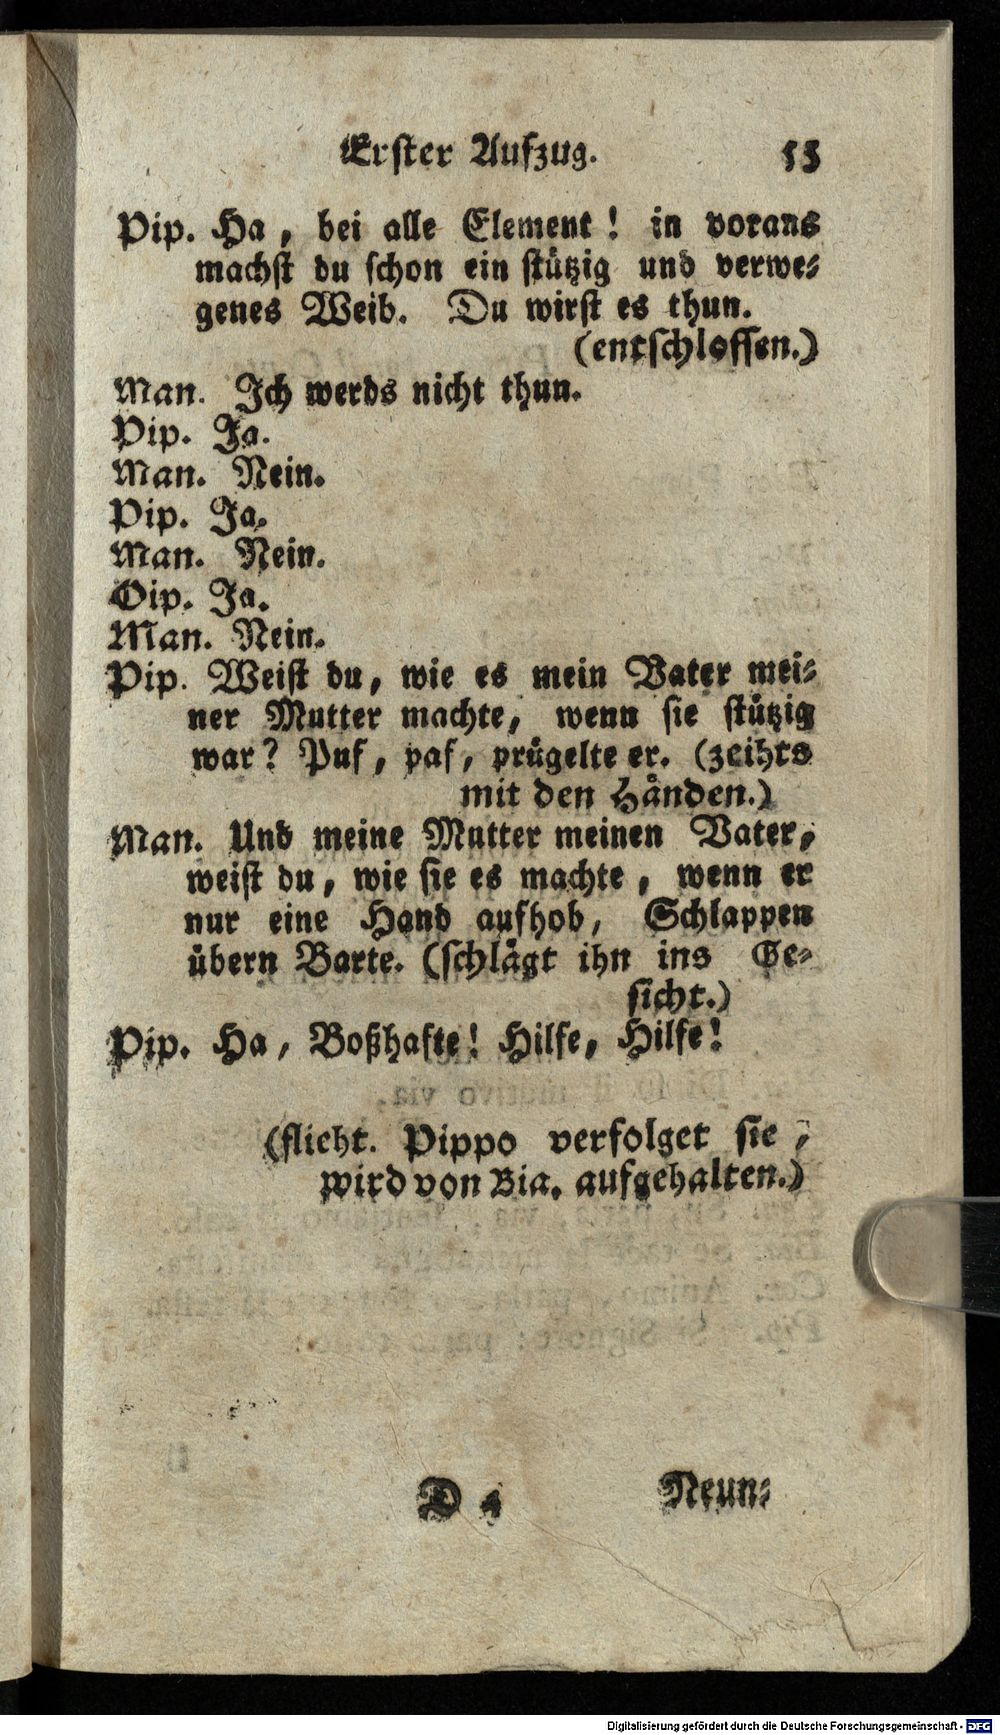 Erster Aufzug. 55
Pip. Ha, bei alle Element! in vorans
machst du schon ein stützig und verwe-
genes Weib. Du wirst es thun.
(entschlossen.)
Man. Ich werds nicht thun.
Pip. Ja.
Man. Nein.
Pip. Ja.
Man. Nein.
Oip. Ja.
Man. Nein.
Pip. Weist du, wie es mein Vater mei-
ner Mutter machte, wenn sie stützig
war? Puf, paf, prügelte er. (zeihts
mit den Händen.)
Man. Und meine Mutter meinen Vater,
weist du, wie sie es machte, wenn er
nur eine Hand aufhob, Schlappen
übern Barte. (schlägt ihn ins Ge-
sicht.)
Pip. Ha, Boßhafte! Hilfe, Hilfe!
(flieht. Pippo verfolget sie,
wird von Bia. aufgehalten.)
D 4 Neun-
Digitalisierung gefördert durch die Deutsche Forschungsgemeinschaft - DFG